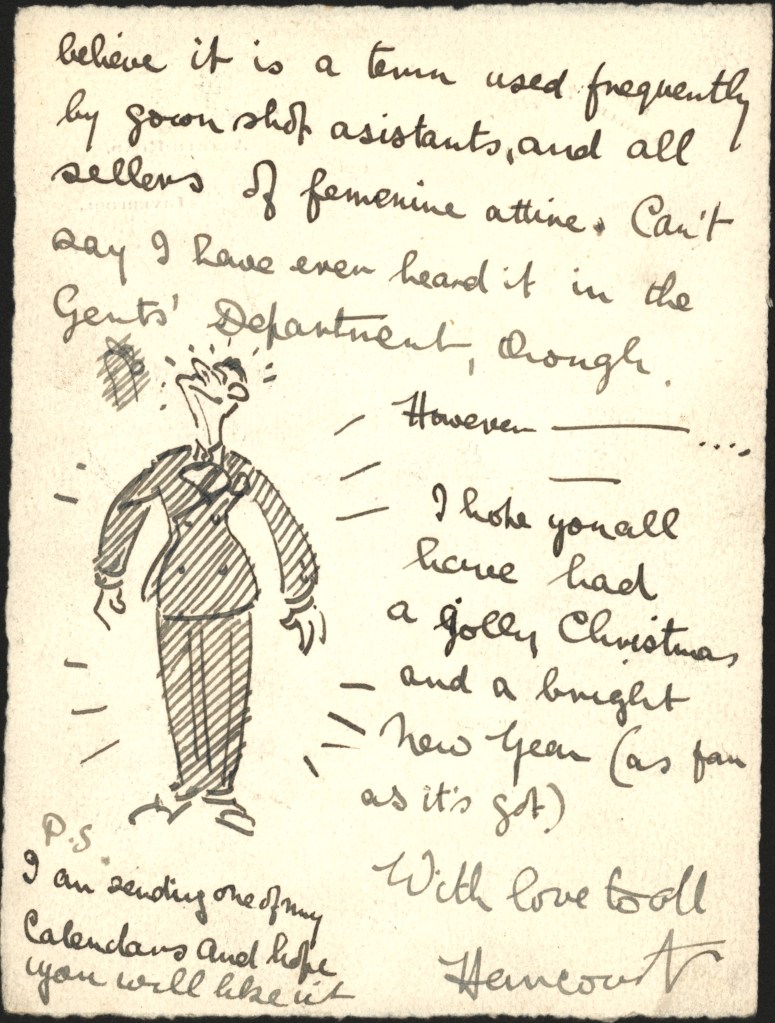 believe it is a term used frequently
by gown shop asistants, and all
sellers of femenine attire. Can't
say I have ever heard it in the
Gents' Department, though.
However ———....
I hope you all
have had
a jolly Christmas
and a bright
New Year (as far
as it's got)
With love to all
Harcourt
P.S.
I am sending one of my
Calendars and hope
you will like it